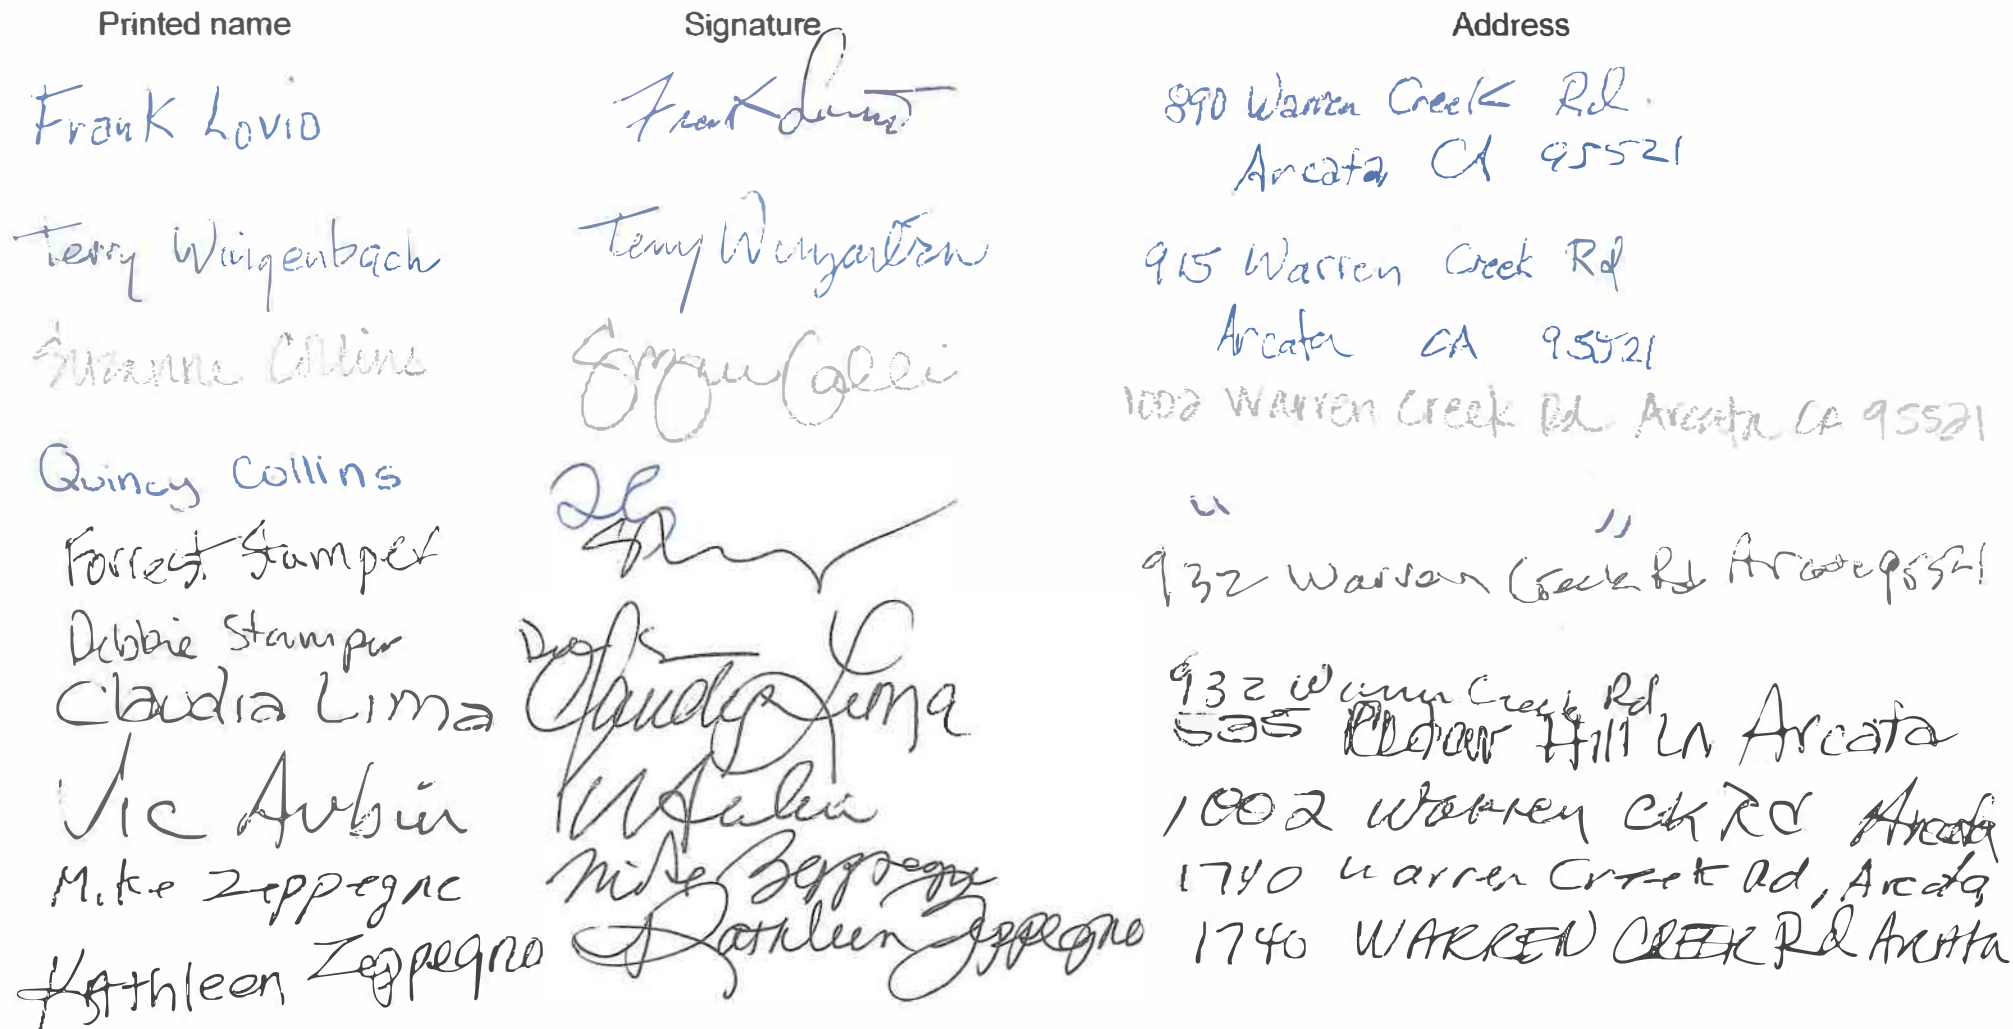 Printed name Signature Address
Frank Lovio Frank 890 Warren Creek Rd.
Arcata, CA 95521
Terry Wingenbach Terry 915 Warren Creek Rd
Arcata CA 95521
Suzanne Collins 1002 Warren Creek Rd Arcata CA 95521
Quincy Collins " "
Forrest Stamper 932 Warren Creek Rd Arcata 95521
Debbie Stamper 932 Warren Creek Rd
Claudia Lima Claudia Lima 535 Hill Ln Arcata
Vic Aubin V Aubin 1002 Warren CK RD Arcata
Mike Zeppegno Mike Zeppegno 1740 Warren Creek Rd, Arcata
Kathleen Zeppegno Kathleen Zeppegno 1740 WARREN CREEK Rd Arcata